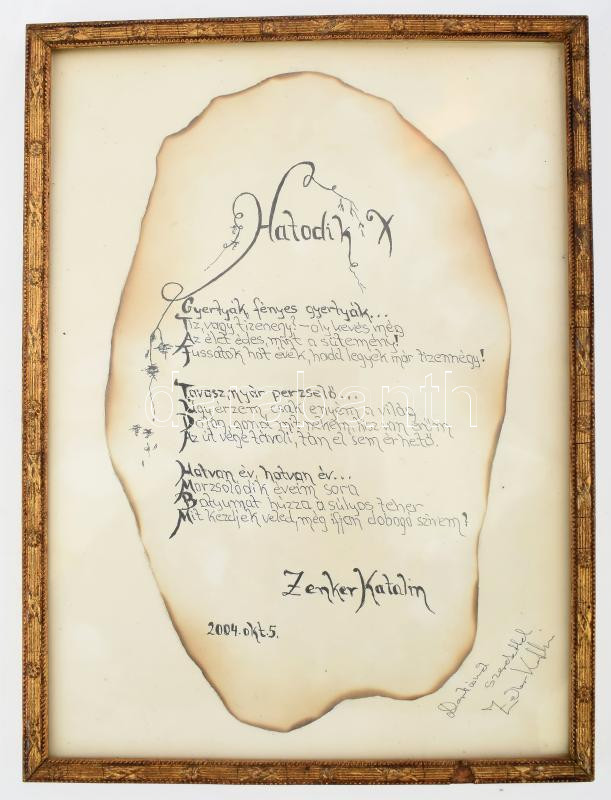 Hatodik X
Gyertyák, fényes gyertyák...
Tíz, vagy tizenegy! - oly kevés még
Az élet édes, mint a sütemény!
Fussatok hát évek, hadd legyek már tizennégy!
Tavasz, nyár perzselő...
Úgy érzem, csak enyém a világ
gond, mit nekem,
Az út vége távoli, tán el sem érhető.
Hatvan év, hatvan év...
Morzsolódik éveim sora
Batyumat húzza a súlyos teher
Mit kezdjek veled, még ifjan dobogó szívem?
Zenker Katalin
2004. okt. 5.
szeretettel
Zenker Kati
darabanth